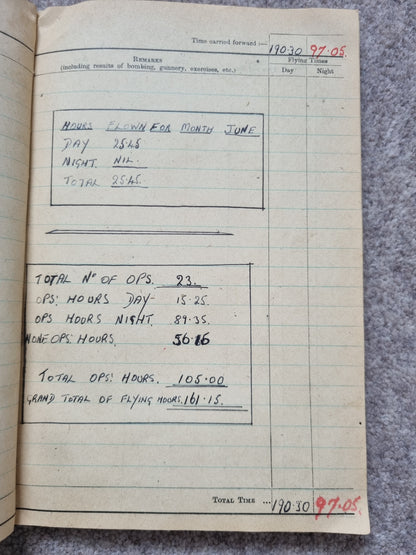 Time carried forward :— 190·30 97·05.
REMARKS
(including results of bombing, gunnery, exercises, etc.)
Flying Times
Day Night
HOURS FLOWN FOR MONTH JUNE
DAY 25·45
NIGHT NIL.
TOTAL 25·45.
TOTAL Nº OF OPS. 23.
OPS: HOURS DAY- 15·25.
OPS HOURS NIGHT. 89·35.
NONE OPS: HOURS. 56·15
TOTAL OPS: HOURS. 105·00
GRAND TOTAL OF FLYING HOURS. 161·15.
TOTAL TIME ... 190·30 97·05.